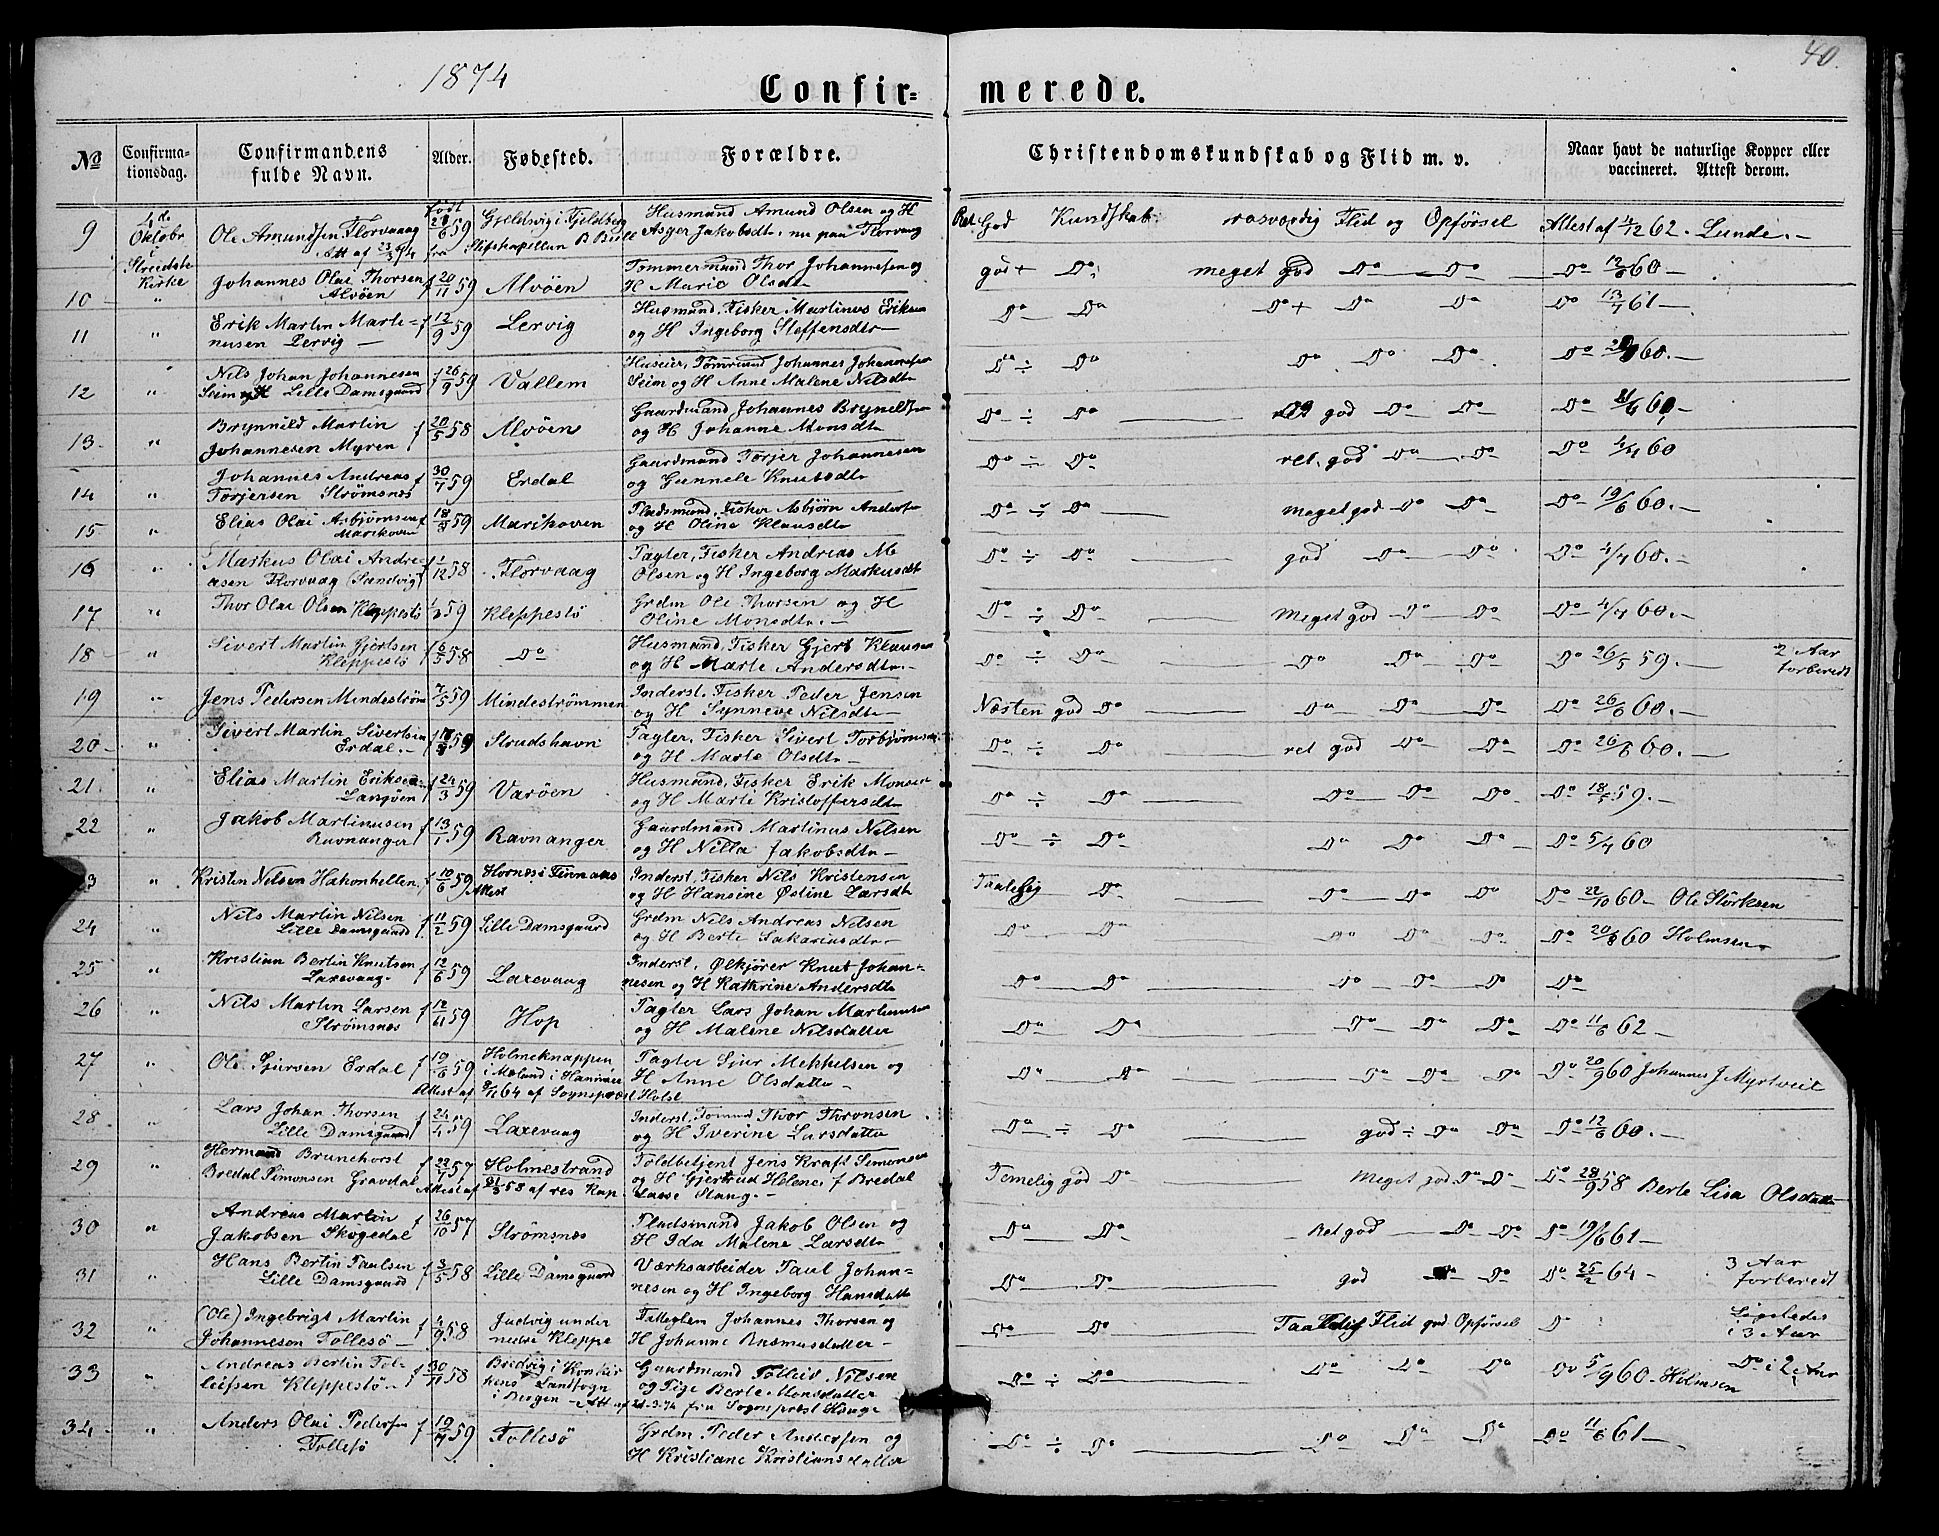 1874
40.
Confir=
merede.
No
Confirma-
tionsdag.
Confirmandens
fulde Navn.
Alder.
Fødested.
Forældre.
Christendomskundskab og Flid m. v.
Naar havt de naturlige Kopper eller
vaccineret. Attest derom.
9
Oktobr
Kirke
Ole Amundsen Florvaag
Att af
født
59
fra
Stifskapellan B Bull
Husmand Amund Olsen og H
Asger Jakobsdtr, nu paa Florvaag
Ret God Kundskab
rosværdig Flid og Opførsel
Attest af 4/12 62. Lunde.-
10
"
Johannes Olai Thorsen
Alvøen
f 20/11 59
Alvøen
Tømmermand Thor Johannesen og
H Marie Olsdtr
god+ Do
meget god Do Do
Do 60-
11
"
Erik Martin Marti=
nusen Lervig
f 12/9 59
Lervig
Husmand, Fisker Martinus Eriksen
og H Ingeborg Steffensdtr
Do Do
Do+ Do Do
Do 13/7 61-
12
"
Nils Johan Johannesen
Lille Damsgaard
f 26/9 59
Vallem
Huseier, Tømrmand Johannes Johannesen
Seim og H Anne Malene Nilsdtr
Do ÷ Do
Do Do Do
Do 60.-
13
"
Brynnild Martin
Johannesen Myren
f 20/5 58
Alvøen
Gaardmand Johannes Bryneldsen
og H Johanne Monsdtr
Do ÷ Do
ret god Do Do
Do 60-
14
"
Johannes Andreas
Torjersen Strømsnes
f 30/7 59
Erdal
Gaardmand Torjer Johannesen
og Gunnele Knutsdtr
Do ÷ Do
ret god Do Do
Do 4/4 60
15
"
Elias Olai Asbjørnsen
Marikoven
59
Marikoven
Pladsmand, Fisker Asbjørn Andersen
og H Oline Klausdtr
Do ÷ Do
Meget god Do Do
Do 19/6 60.-
16
"
Markus Olai Andre=
asen Florvaag (Sandvig)
f 1/12 58
Florvaag
Pagter, Fisker Andreas M
Olsen og H Ingeborg Markusdt
Do ÷ Do
god Do Do
Do 4/4 60.-
17
"
Thor Olai Olsen Kleppestø
59
Kleppestø
Grdm Ole Thorsen og H
Oline Monsdtr.-
Do ÷ Do
Meget god Do Do
Do 4/4 60.-
18
"
Sivert Martin Gjertsen
Kleppestø
f 6/5 58
Do
Husmand, Fisker Gjert Klausen
og H Marte Andersdtr.-
Do ÷ Do
Do Do Do
Do 26/5 59.-
2 Aar
forberedt
19
"
Jens Pedersen Mindestrøm
7/5 59
Mindestrømmen
Inderst, Fisker Peder Jensen
og H Synneve Nilsdtr
Næsten god Do
Do Do Do
Do 26/6 60.-
20
"
Sivert Martin Sivertsen
Erdal.-
59
Strudshavn
Pagter, Fisker Sivert Torbjørnsen
og H Marte Olsdtr
Do ÷ Do
ret god Do Do
Do 26/6 60.-
21
"
Elias Martin Eriksen
Langøen
f 24/3 59
Varøen
Husmand, Fisker Erik Monsen
og H Marte Kristoffersdtr
Do ÷ Do
Do Do Do
Do 59.-
22
"
Jakob Martinusen
Ravnanger
f 13/1 59
Ravnanger
Gaardmand Martinus Nilsen
og H Nilla Jakobsdtr
Do ÷ Do
Do Do Do
Do 5/4 60
3
"
Kristen Nilsen Hakonhellen
f 10/6 59
Attest
Inderst, Fisker Nils Kristensen
og H Hansine Østine Larsdt
Taalelig Do
Do Do Do
Do 22/10 60- Ole Størksen
24
"
Nils Martin Nilsen
Lille Damsgaard
f 11/2 59
Lille Damsgaard
Grdm Nils Andreas Nilsen
og H Berte Sakariasdtr
Do Do
Do Do Do
Do 20/8 60 Holmsen
25
"
Kristian Bertin Knutsen
Laxevaag-
f 12/6 59
Laxevaag
Inderst, Ølkjører Knut Johan=
nesen og H Kathrine Andersdtr
Do Do
Do Do Do
Do
26
"
Nils Martin Larsen
Strømsnes
59
Hop
Pagter Lars Johan Martinusen
og H Malene Nilsdatter
Do Do
Do Do Do
Do 11/6 62-
27
"
Ole Sjursen Erdal
f 19/6 59
Attest af
Holmeknappen
i Mæland i Hammer
64 af Sognspræst Holst
Pagter Sjur Mekkelsen og
H Anne Olsdatter
Do Do
Do Do Do
Do 20/9 60 Johannes J Myrtveit
28
"
Lars Johan Thorsen
Lille Damsgaard
f 24/4 59
Laxevaag
Inderst, Tømmd Thor Thronsen
og H Iverine Larsdatter
Do ÷ Do
god ÷ Do Do
Do 12/6 60.-
29
"
Hermand Brunchorst
Bredal Simonsen Gravdal
f 22/7 57
Attest af
Holmestrand
58 af res Kap
Toldbetjent Jens Kraft Simonsen
og H Gjertrud Helene f Bredal
Lasse Stang.-
Temelig god Do
Meget god Do Do
Do 28/9 58 Berte Lisa Olsdatter
30
"
Andreas Martin
Jakobsen Skogedal
f 26/10 57
Strømsnes
Pladsmand Jakob Olsen og
H Ida Malene Larsdtr
Do Do
Ret god Do Do
Do 19/6 61-
31
"
Hans Bertin Paulsen
Lille Damsgaard
f 3/5 58
Lille Damsgaard
Værksarbeider Paul Johan=
nesen og H Ingeborg Hansdatter
Do Do
god Do Do
Do 25/2 64-
3 Aar
forberedt
32
"
(Ole) Ingebrigt Martin
Johannesen Follesø
f 4/9 58
Judvig under
nedre Kleppe
Fattiglem Johannes Thorsen og
H Johanne Rasmusdatter
Do Do
Taalelig Flid god Opførsel
Do
Ligeledes
i 3 Aar
33
"
Andreas Bertin Tol=
leifsen Kleppestø
f 30/11 58
Bredvig i Korskir
kens Landsogn
i Bergen - Att af 21-3-74 fra Sognepræst Hauge
Gaardmand Tolleiv Nilsen
og Pige Berte Monsdatter
Do ÷ Do
Do Do Do
Do 5/9 60- Holmsen
Do i 2 Aar
34
"
Anders Olai Pedersen
Follesø
59
Follesø
Grdm Peder Andersen og
H Kristiane Kristiansdatter
Do ÷ Do
Do Do Do
Do 11/6 61-